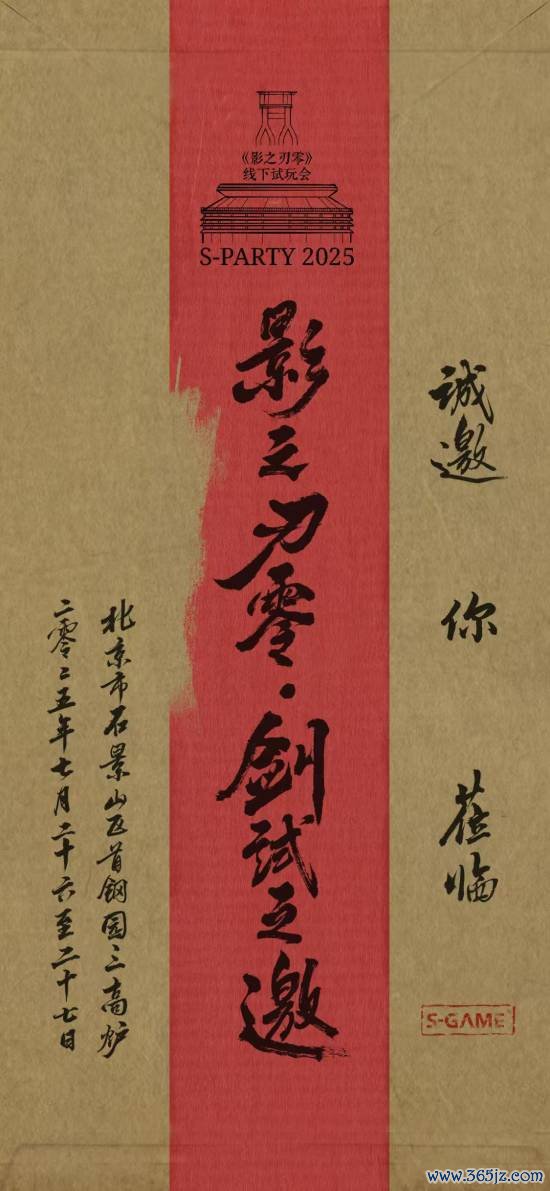 《影之刃零》
线下试玩会
S-PARTY 2025
誠邀 你 莅临
影之刃零·劍試之邀
北京市石景山区首钢园三高炉
二零二五年七月二十六至二十七日
S-GAME
www.365jz.com